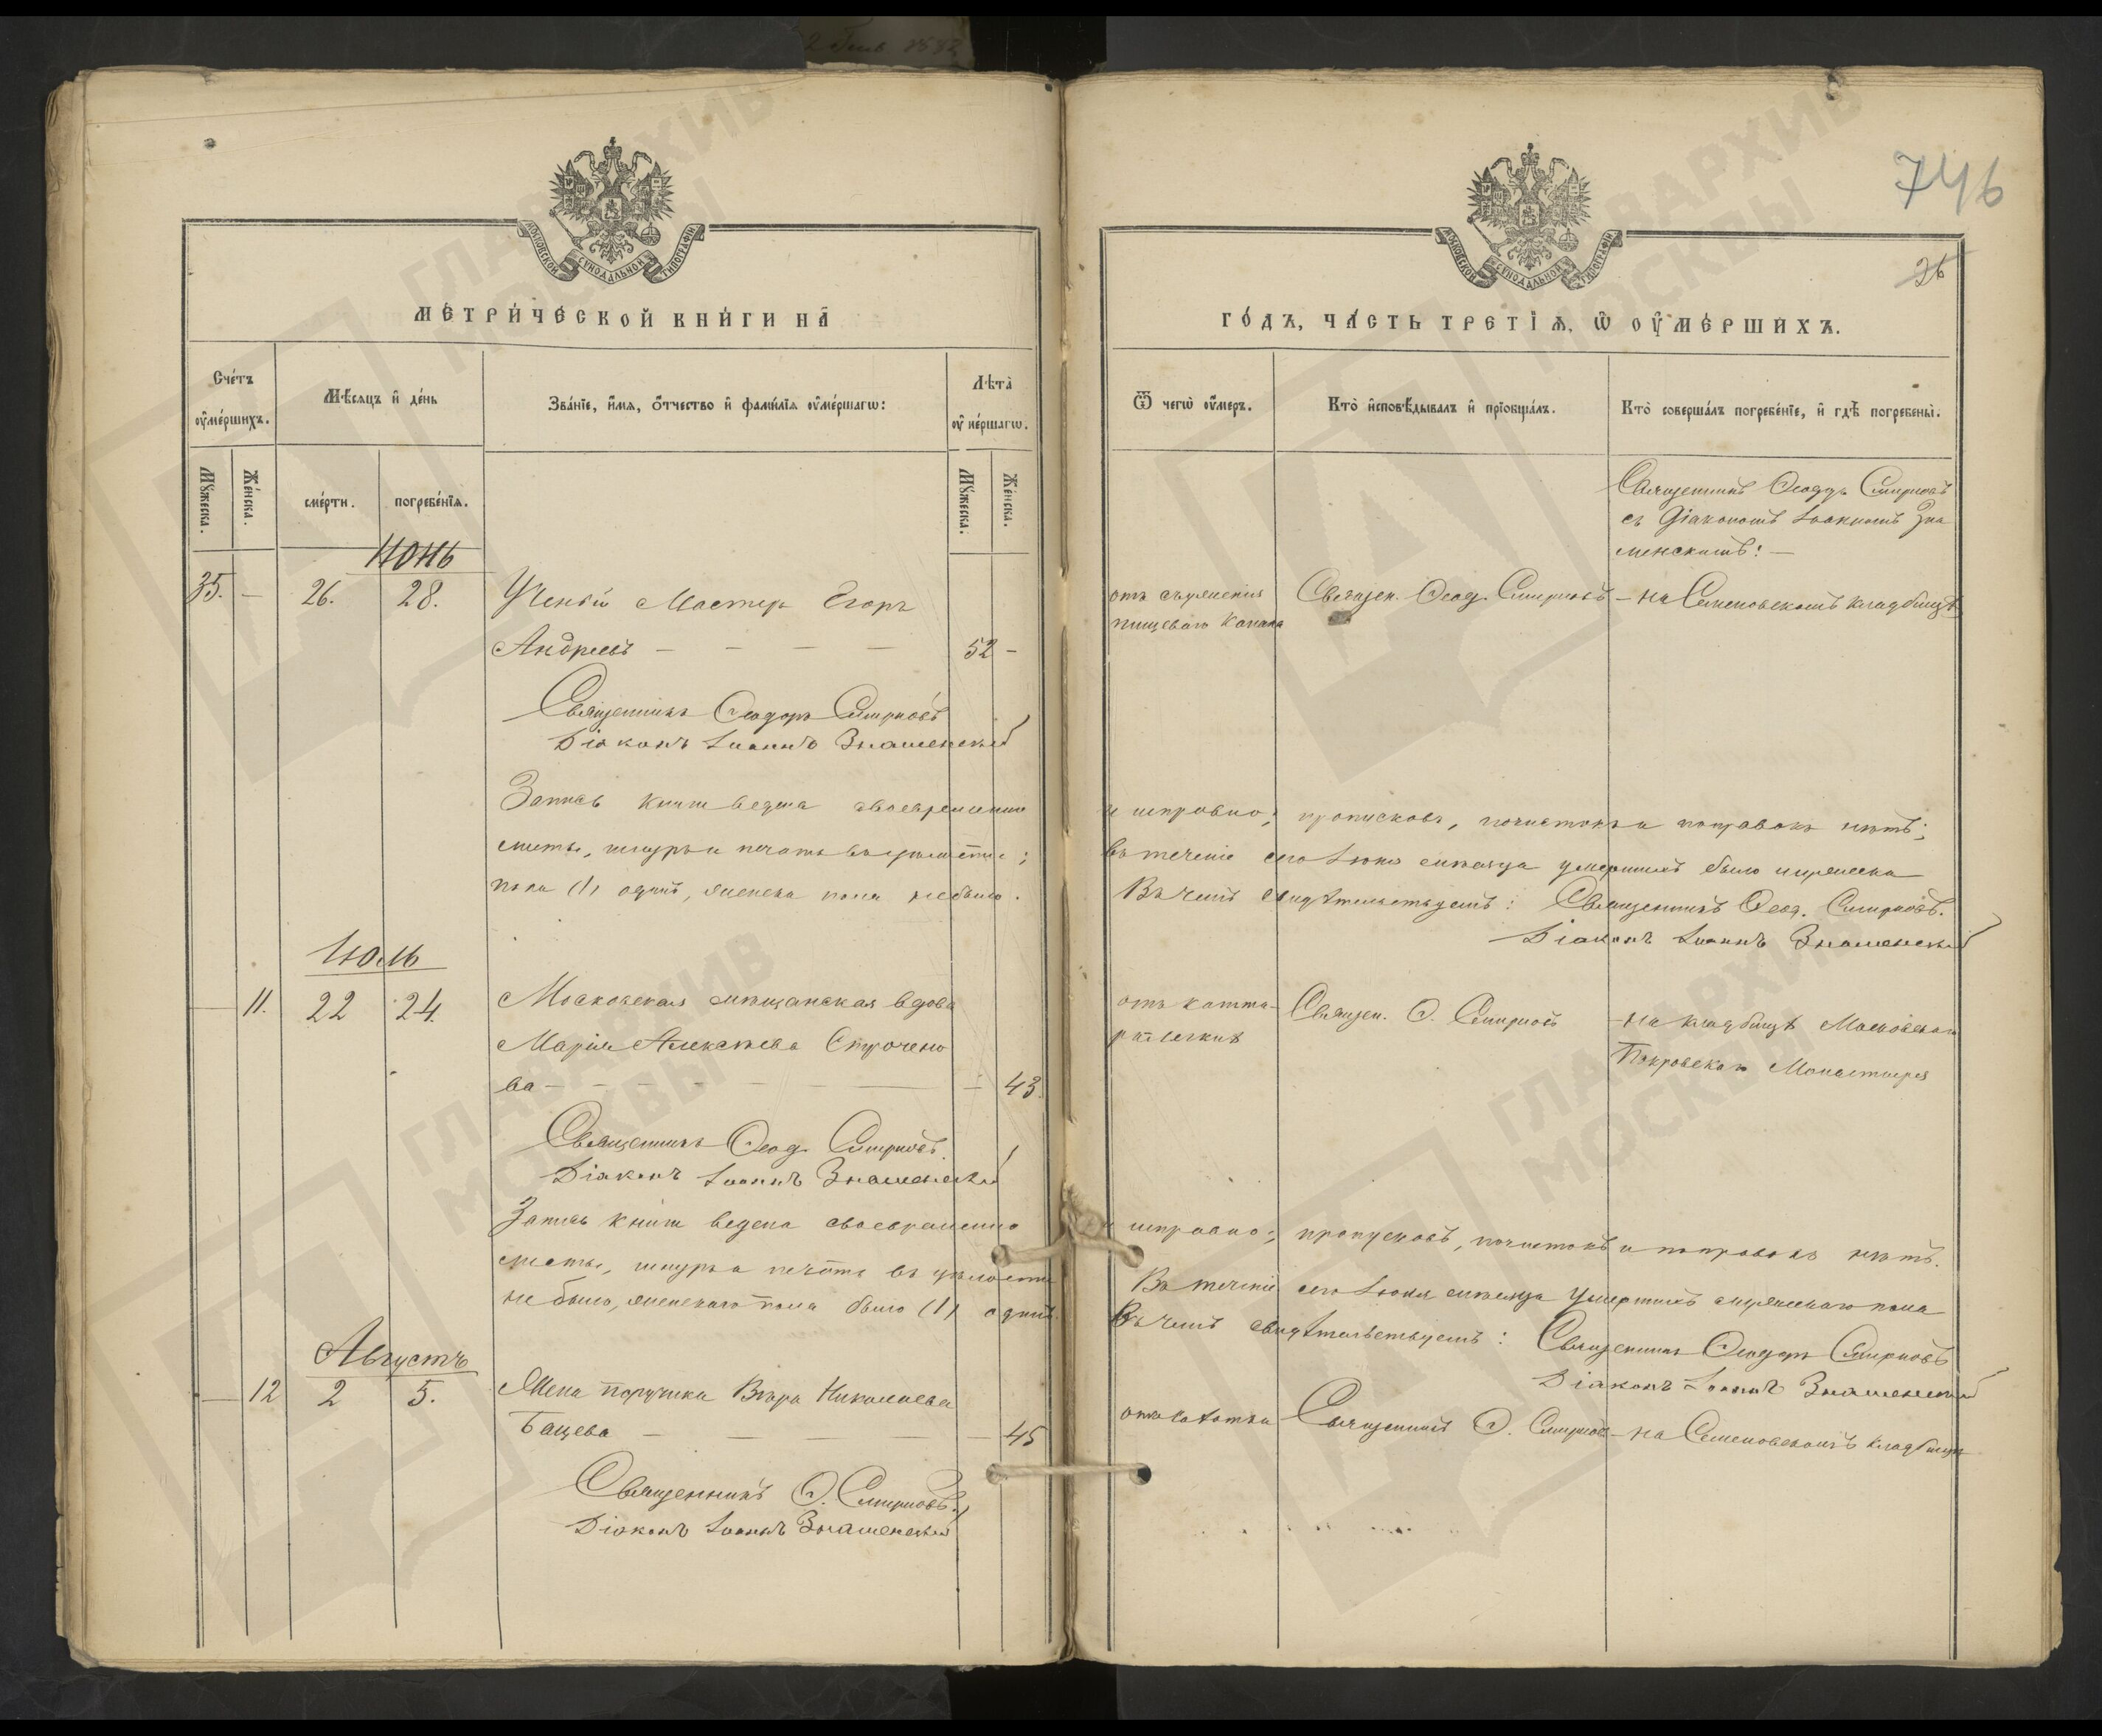 746
26
МОСКОВСКОЙ СѴНОДАЛЬНОЙ ТИПОГРАФІИ
МЕТРИ́ЧЕСКОЙ КНИ́ГИ НА̀
Сче́тъ оу҆ме́ршихъ.
Мѣ́сяцъ и҆ де́нь
Зва́нїе, и҆́мя, ѻ҆́тчество и҆ фами́лїя оу҆ме́ршагѡ:
Лѣта̀ оу҆ме́ршагѡ.
Мꙋ́жеска.
Же́нска.
сме́рти.
погребе́нїѧ.
Мꙋ́жеска.
Же́нска.
Іюнь
35. — 26. 28. Ученый Мастеръ Егоръ
Андреевъ — — — — 52 —
Священникъ Ѳеодоръ Смирновъ
Діаконъ Іоаннъ Знаменскій
Запись книги ведена своевременно
листы, шнуръ и печать въ цѣлости;
пола (1) одинъ, женска пола не было.
Іюль
— 11. 22 24. Московская мѣщанская вдова
Марія Алексѣева Строчено
ва — — — — — — 43.
Священникъ Ѳеод. Смирновъ.
Діаконъ Іоаннъ Знаменскій
Запись книги ведена своевременно
листы, шнуръ и печать въ цѣлости
не было, женскаго пола было (1) одинъ.
Августъ
— 12 2 5. Жена поручика Вѣра Николаева
Бацева — — — — 45
Священникъ Ѳ. Смирновъ.
Діаконъ Іоаннъ Знаменскій
МОСКОВСКОЙ СѴНОДАЛЬНОЙ ТИПОГРАФІИ
ГО́ДЪ, ЧА́СТЬ ТРЕТІѦ, Ѡ҆ ОУ҆МЕ́РШИХЪ.
Ѿ чегѡ̀ оу҆́меръ.
Кто̀ и҆сповѣ́дывалъ и҆ прїобща́лъ.
Кто̀ соверша́лъ погребе́нїе, и҆ гдѣ̀ погребены̀.
Священникъ Ѳеодоръ Смирновъ
съ Діакономъ Іоанномъ Зна
менскимъ: —
отъ съуженія Священ. Ѳеод. Смирновъ — на Семеновскомъ кладбищѣ
пищевого канала
и исправно; пропусковъ, почистокъ и поправокъ нѣтъ;
въ теченіе сего Іюня мѣсяца умершихъ было мужеска
Въ чемъ свидѣтельствуемъ: Священникъ Ѳеод. Смирновъ.
Діаконъ Іоаннъ Знаменскій
отъ катта- Священ. Ѳ. Смирновъ — на кладбищѣ Московскаго
ра легкихъ
Покровскаго Монастыря
и исправно; пропусковъ, почистокъ и поправокъ нѣтъ.
Въ теченіе сего Іюля мѣсяца умершихъ мужескаго пола
Въ чемъ свидѣтельствуемъ: Священникъ Ѳеодоръ Смирновъ
Діаконъ Іоаннъ Знаменскій
отъ чахотки Священникъ Ѳ. Смирновъ — на Семеновскомъ кладбищѣ
ГЛАВАРХИВ МОСКВЫ
ГЛАВАРХИВ МОСКВЫ
ГЛАВАРХИВ МОСКВЫ
ГЛАВАРХИВ МОСКВЫ